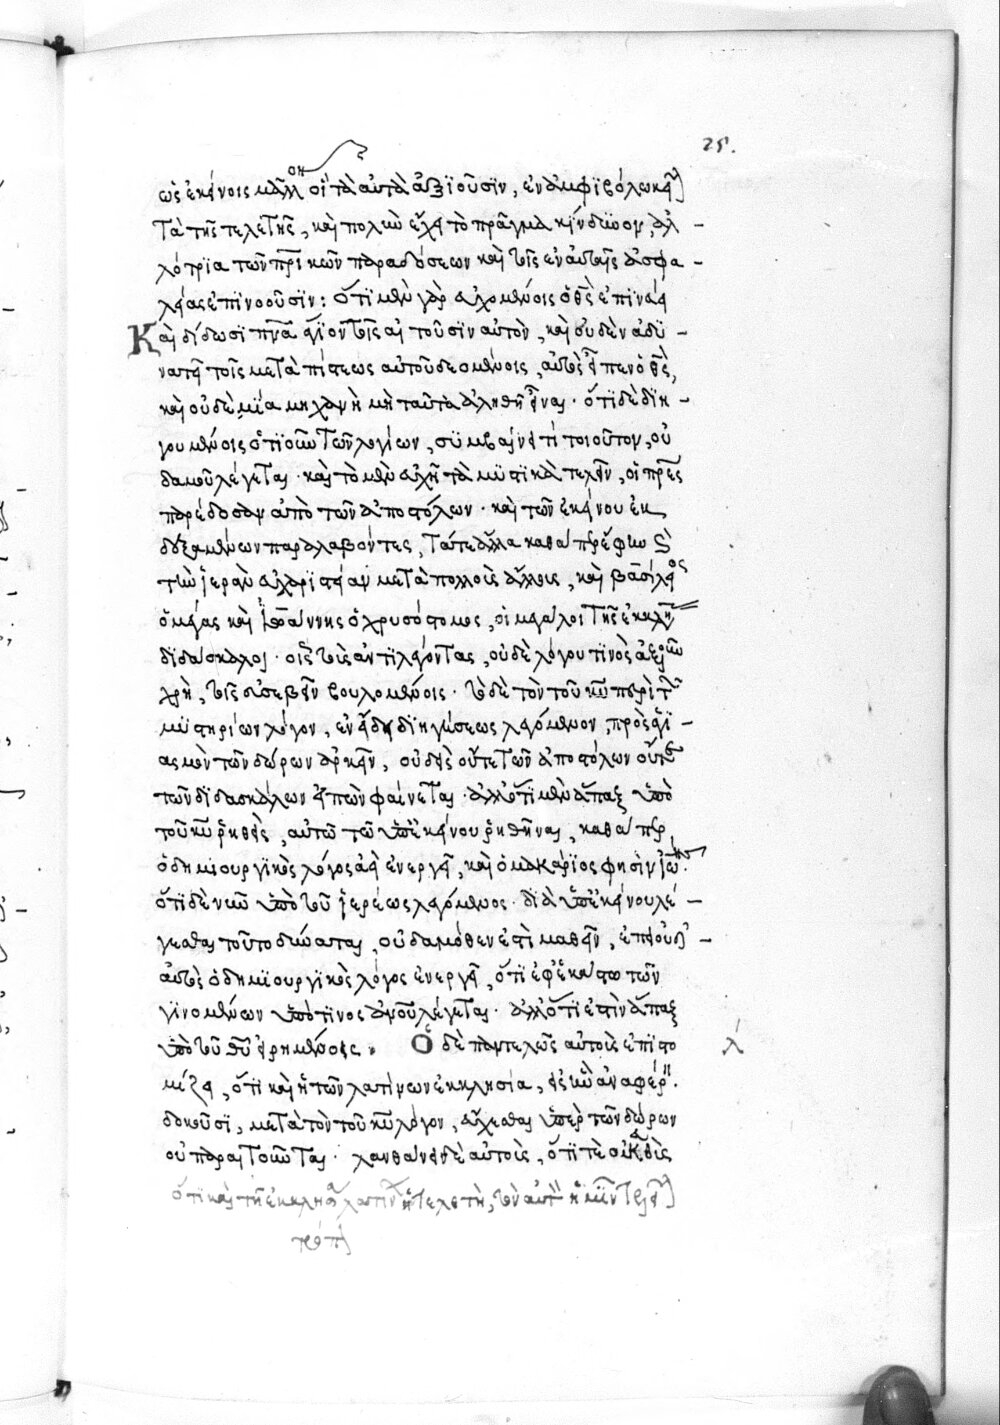 25.
ὡς ἐκείνοις μᾶλλον οἱ τὰ αὐτὰ ἀξιοῦσιν, ἐν ἀμφιβόλῳ κεῖ
τὰ τῆς τελετῆς, καὶ πολὺν ἔχει τὸ πρᾶγμα κίνδυνον, ἀλ
λότρια τῶν πρικῶν παραδόσεων καὶ τῆς ἐν αὐταῖς ἀσφα
λείας ἐπινοοῦσιν: ὅτι μὲν γὰρ εὐχομένοις ὁ θς ἐπινεύει
Καὶ δίδωσι πνα ἅγιον τοῖς αἰτοῦσιν αὐτὸν, καὶ οὐδὲν ἀδύ
νατεῖ τοῖς μετὰ πίστεως αὐτοῦ δεομένοις, αὐτὸς εἶπεν ὁ θς,
καὶ οὐδὲ μία μηχανὴ μὴ ταῦτα ἀληθῆ εἶναι. ὅτι δὲ διη
γουμένοις ὁτιοῦν τῶν λογίων, συμβαίνει τι τοιοῦτον, οὐ
δαμοῦ λέγεται. καὶ τὸ μὲν εὐχῇ τὰ μυστικὰ τελεῖν, οἱ πρες
παρέδοσαν ἀπὸ τῶν ἀποστόλων. καὶ τῶν ἐκείνου ἐκ
δεξαμένων παραλαβόντες, τά τε ἄλλα καθάπερ ἔφην καὶ
τὴν ἱερὰν εὐχαριστίαν μετὰ πολλοὺς ἄλλους, καὶ βασίλειος
ὁ μέγας καὶ Ἰωάννης ὁ χρυσόστομος, οἱ μεγάλοι τῆς ἐκκλη
διδάσκαλοι. οἷς τοὺς ἀντιλέγοντας, οὐδὲ λόγου τινὸς ἀξιοῦν
χρὴ, τοῖς εὐσεβεῖν βουλομένοις. τὸ δὲ τὸν τοῦ κυ περὶ τῶν
μυστηρίων λόγον, ἐν εἴδει διηγήσεως λεγόμενον, πρὸς ἁγι
ασμὸν τῶν δώρων ἀρκεῖν, οὐδεὶς οὔτε τῶν ἀποστόλων οὔτε
τῶν διδασκάλων εἰπὼν φαίνεται. ἀλλ' ὅτι μὲν ἅπαξ ὑπὸ
τοῦ κυ ῥηθεὶς, αὐτῷ τῷ ὑπ' ἐκείνου ῥηθῆναι, καθάπερ
ὁ δημιουργικὸς λόγος ἀεὶ ἐνεργεῖ, καὶ ὁ μακάριος φησὶν ἰω.
ὅτι δὲ νῦν ὑπὸ τοῦ ἱερέως λεγόμενος. διὰ τὸ ὑπ' ἐκείνου λέ
γεσθαι τοῦτο δύναται, οὐδαμόθεν ἔστι μαθεῖν, ἐπεὶ οὐδ'
αὐτὸς ὁ δημιουργικὸς λόγος ἐνεργεῖ, ὅτι ἐφ' ἑκάστῳ τῶν
γινομένων ὑπό τινος ἀνοῦ λέγεται. ἀλλ' ὅτι ἐστὶν ἅπαξ
ὑπὸ τοῦ θυ εἰρημένος. Ὃ δὲ παντελῶς αὐτοὺς ἐπιστο
λ
μίζει, ὅτι καὶ ἡ τῶν λατίνων ἐκκλησία, εἰς ἣν ἀναφέρειν
δοκοῦσι, μετὰ τὸν τοῦ κυ λόγον, εὔχεσθαι ὑπὲρ τῶν δώρων
οὐ παραιτοῦνται. λανθάνει δὲ αὐτοὺς, ὅτι τε οὐκ εὐθὺς